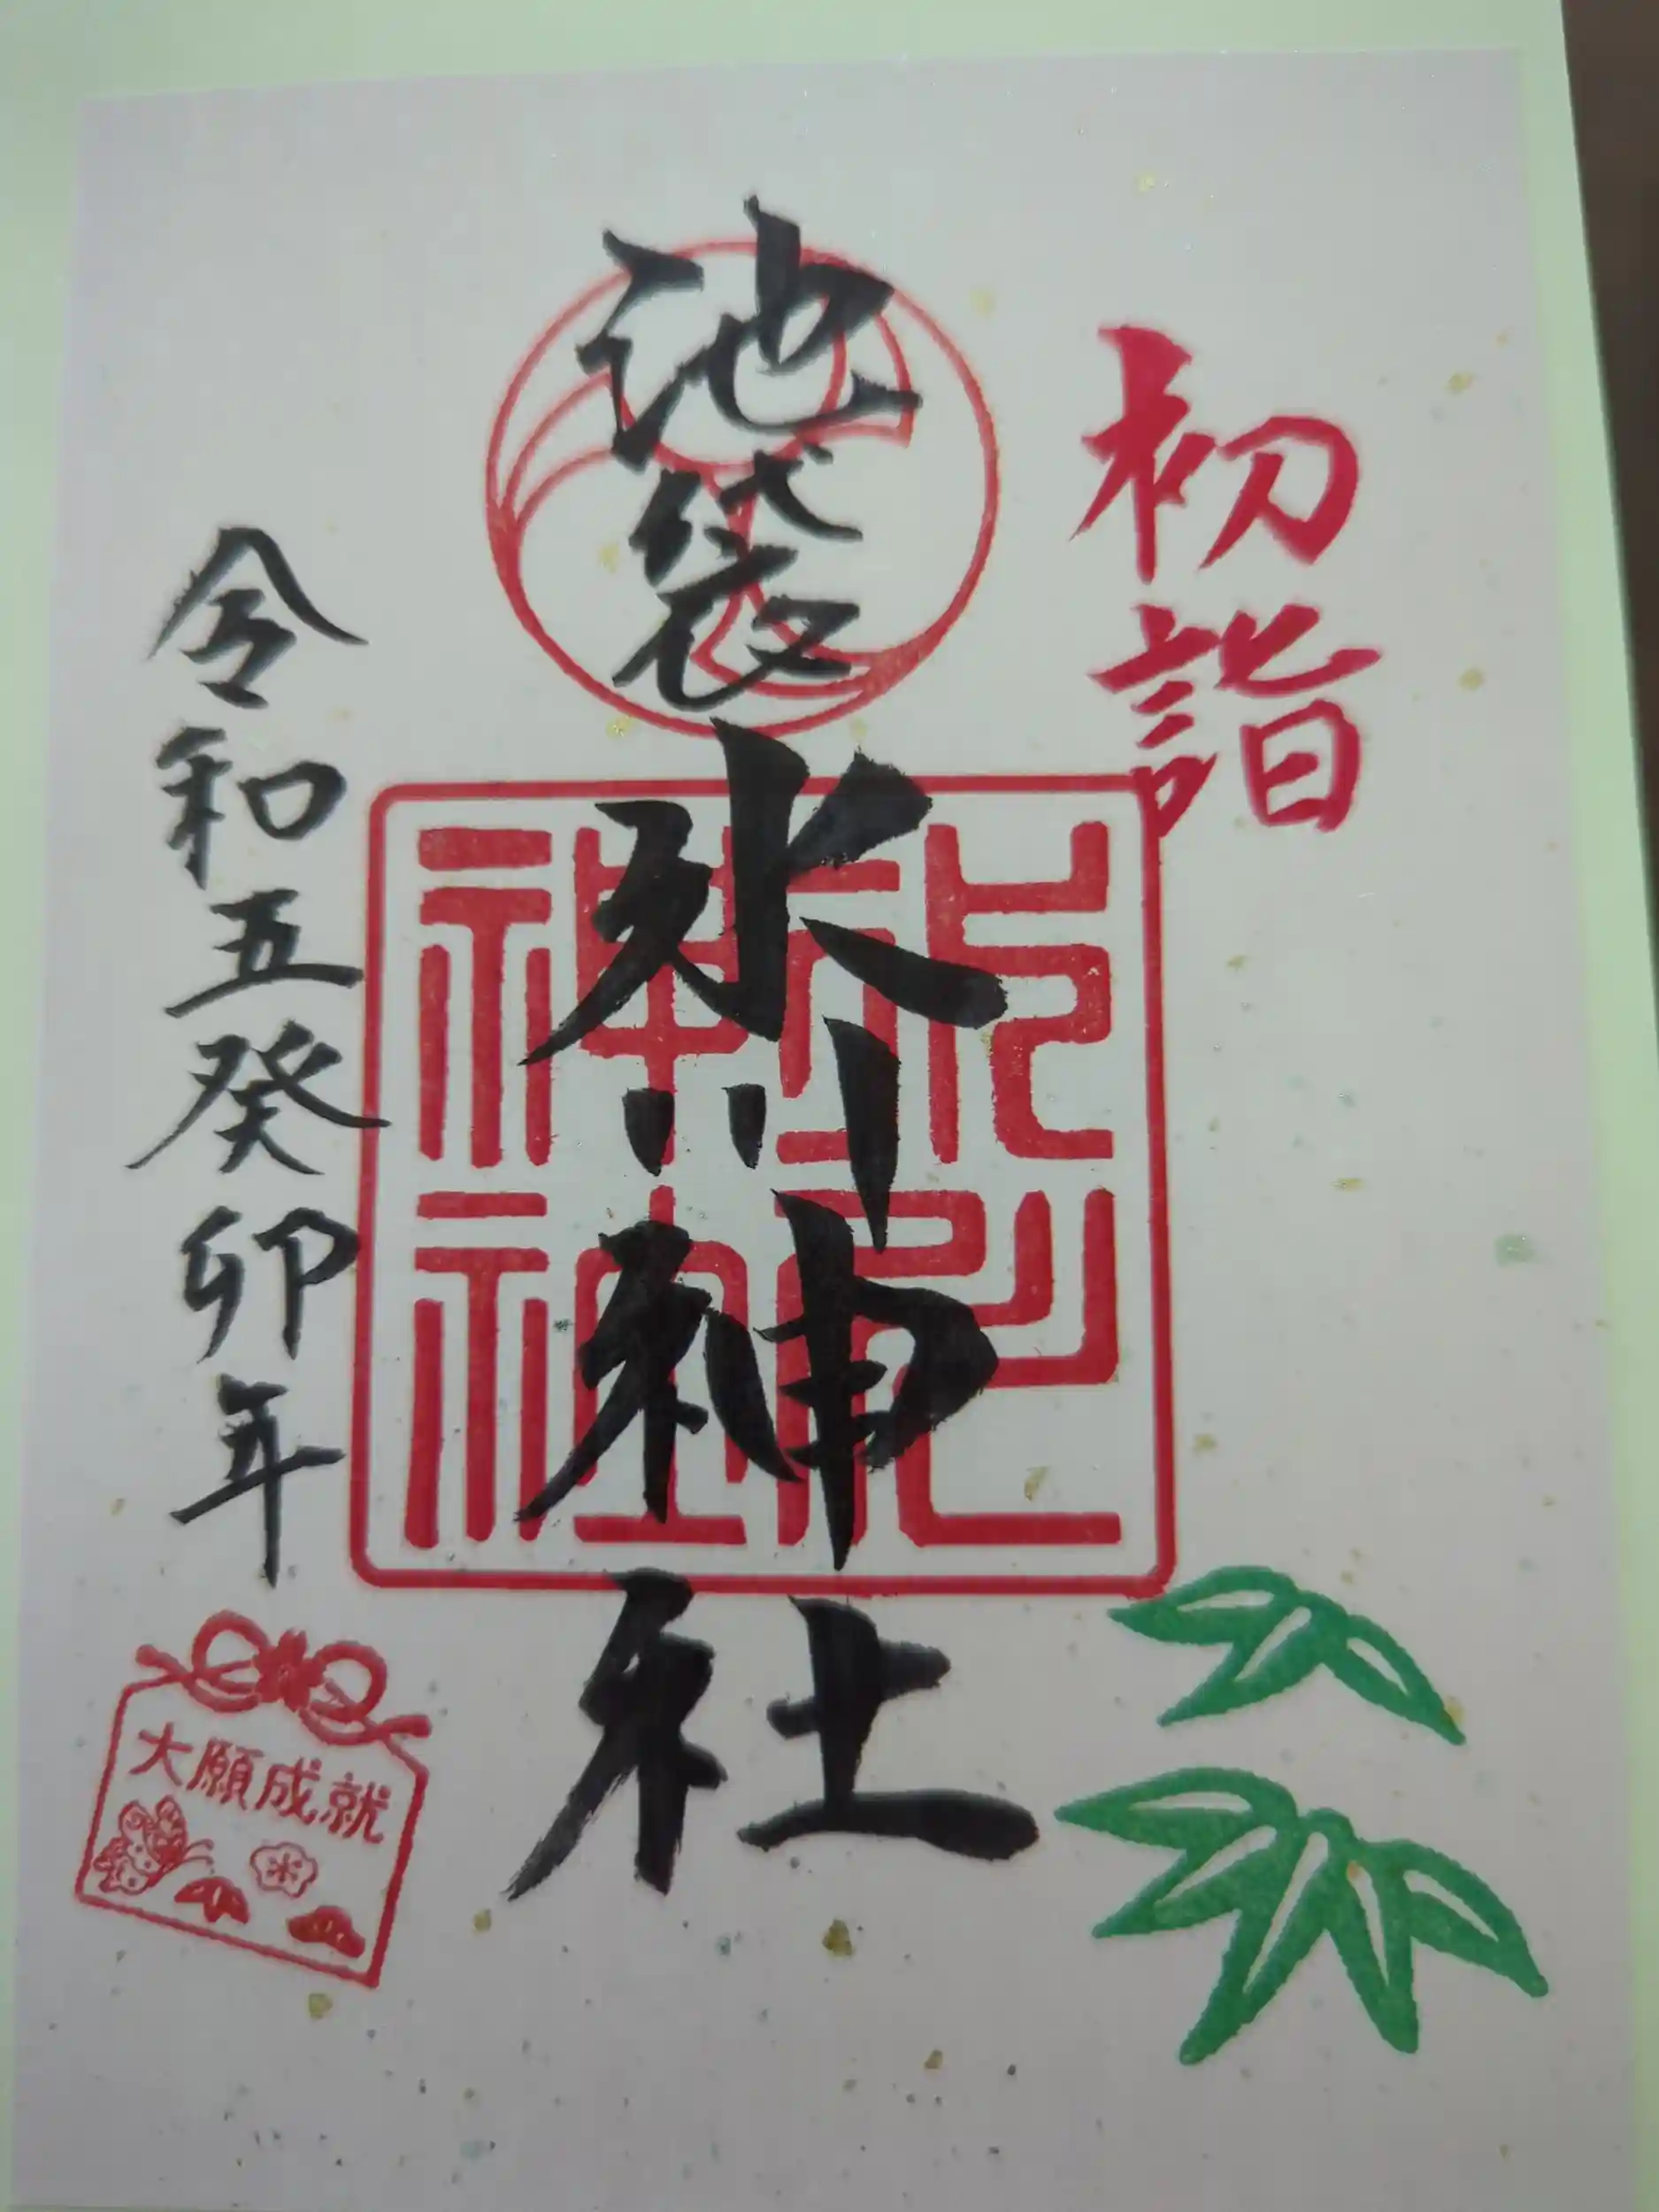 初詣
池袋氷川神社
氷川神社
令和五癸卯年
大願成就